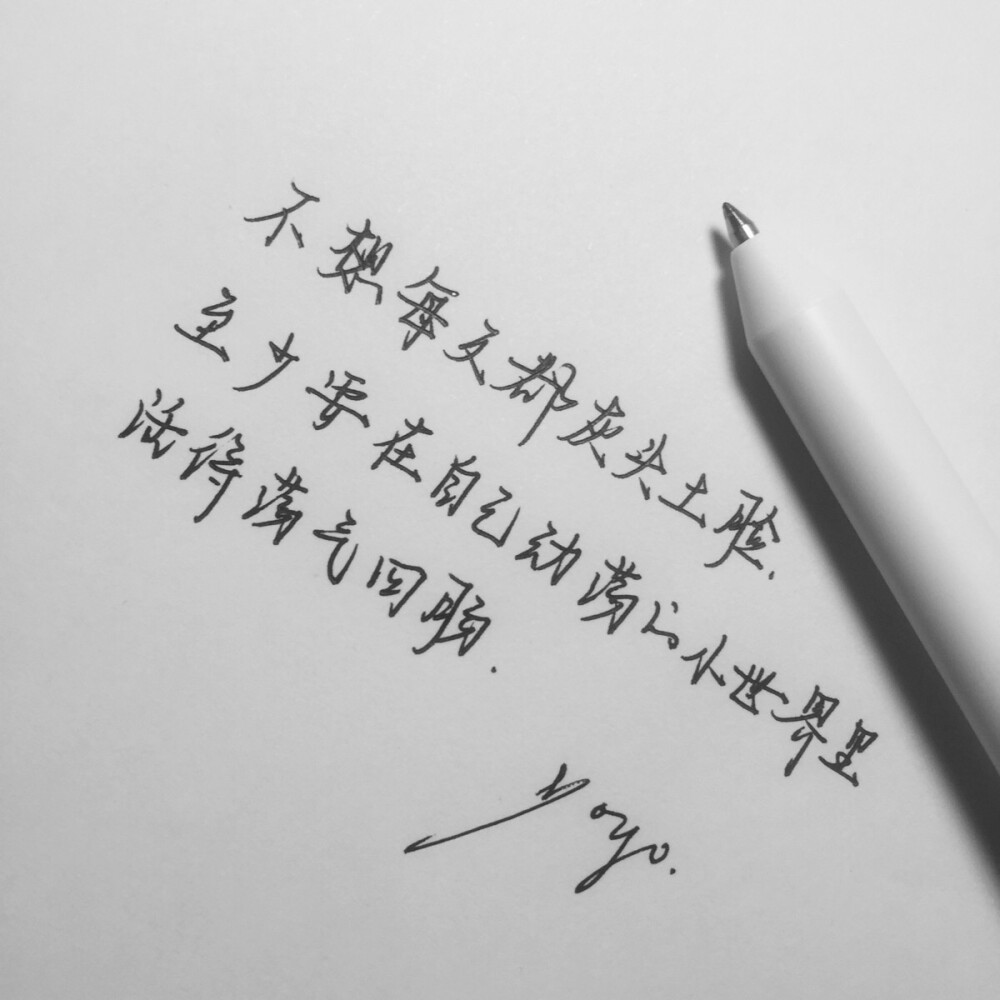 不想每天都灰头土脸.
至少要在自己动荡的小世界里
活得荡气回肠.
Yoyo.